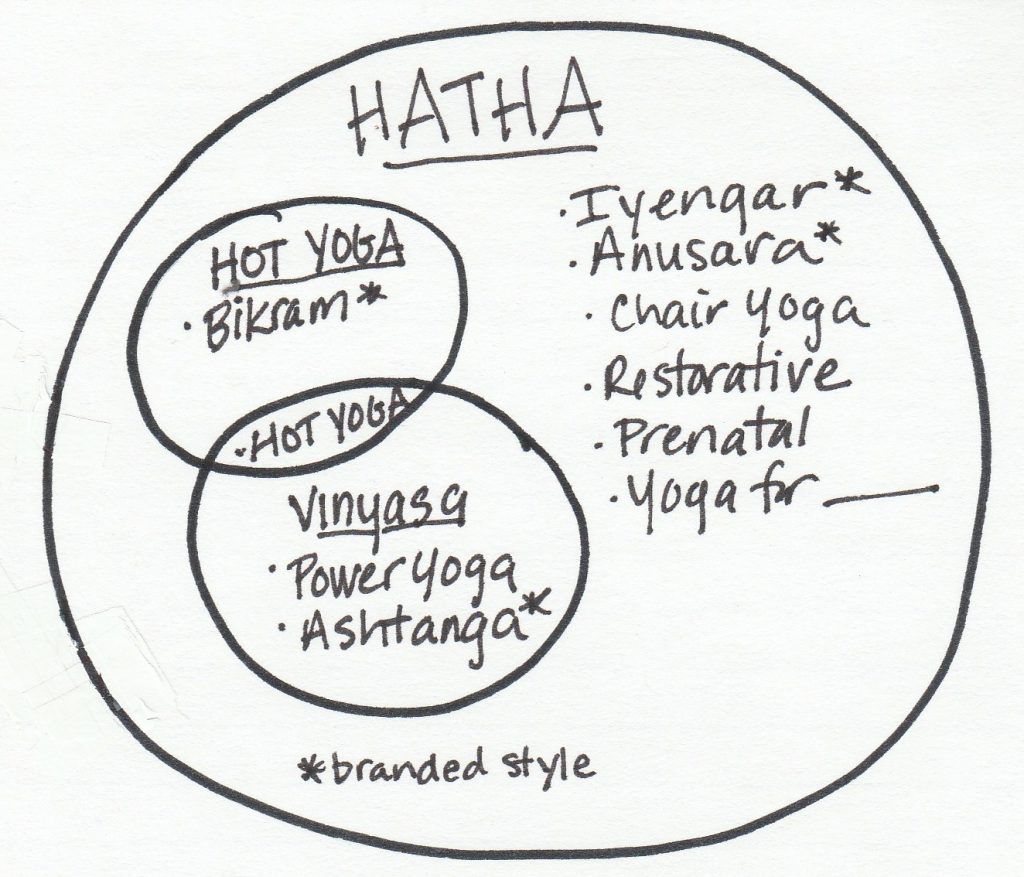 HATHA
HOT YOGA
· Bikram*
· HOT YOGA
Vinyasa
· Power Yoga
· Ashtanga*
· Iyengar*
· Anusara*
· Chair Yoga
· Restorative
· Prenatal
· Yoga for ____
*branded style